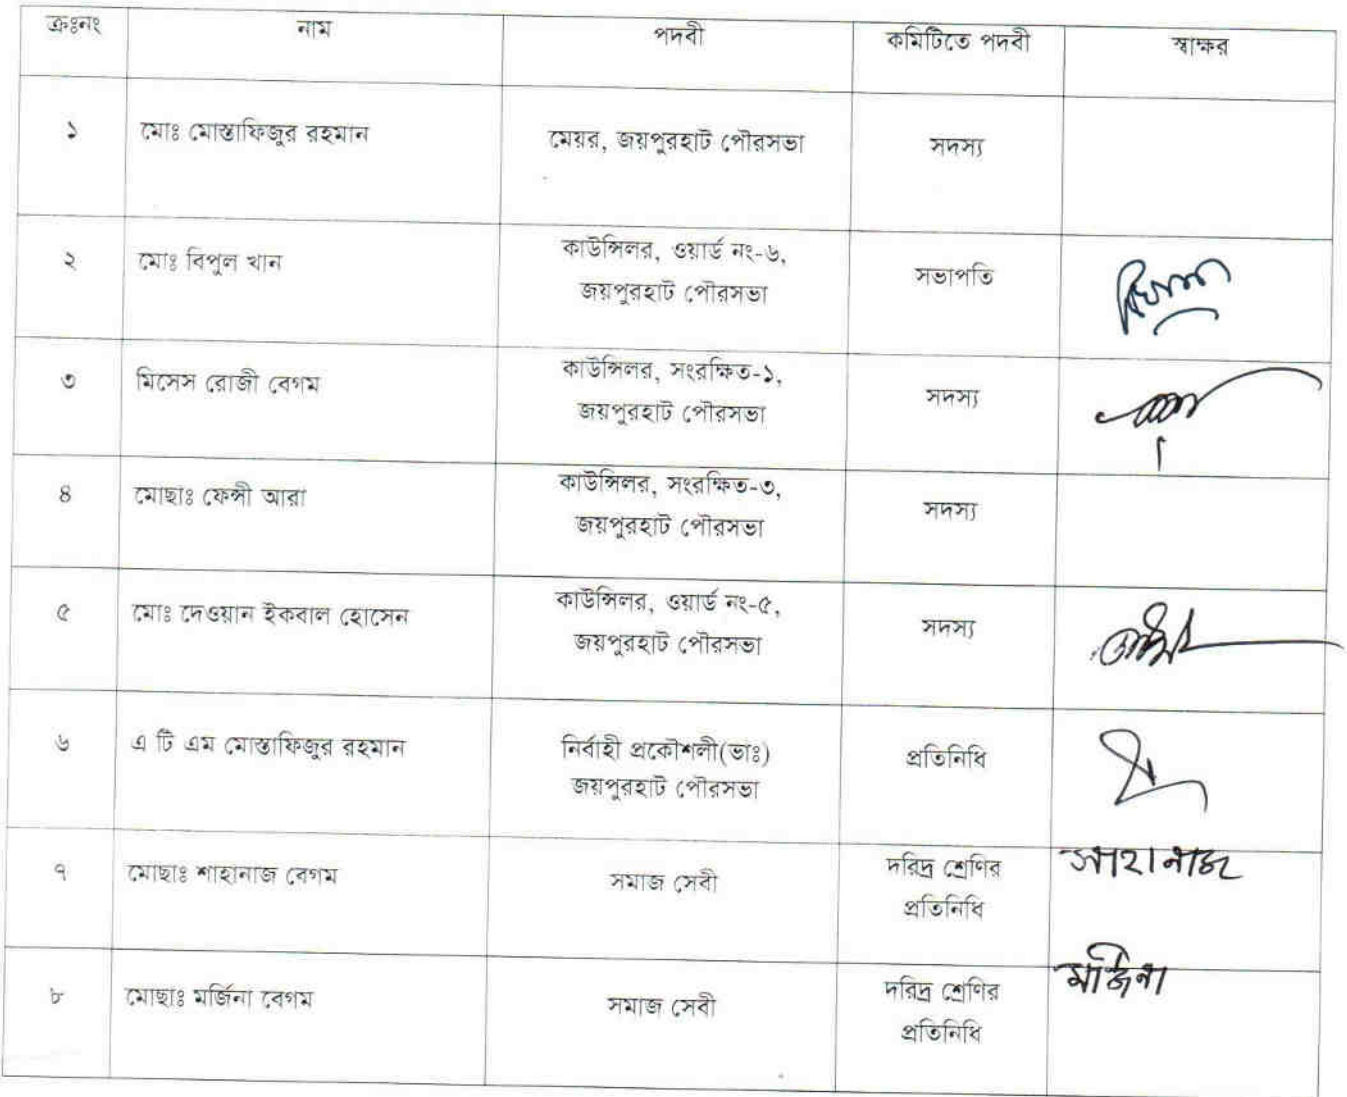 ক্রঃনং নাম পদবী কমিটিতে পদবী স্বাক্ষর
১ মোঃ মোস্তাফিজুর রহমান মেয়র, জয়পুরহাট পৌরসভা সদস্য
২ মোঃ বিপুল খান কাউন্সিলর, ওয়ার্ড নং-৬,
জয়পুরহাট পৌরসভা সভাপতি
৩ মিসেস রোজী বেগম কাউন্সিলর, সংরক্ষিত-১,
জয়পুরহাট পৌরসভা সদস্য
৪ মোছাঃ ফেন্সী আরা কাউন্সিলর, সংরক্ষিত-৩,
জয়পুরহাট পৌরসভা সদস্য
৫ মোঃ দেওয়ান ইকবাল হোসেন কাউন্সিলর, ওয়ার্ড নং-৫,
জয়পুরহাট পৌরসভা সদস্য
৬ এ টি এম মোস্তাফিজুর রহমান নির্বাহী প্রকৌশলী(ভাঃ)
জয়পুরহাট পৌরসভা প্রতিনিধি
৭ মোছাঃ শাহানাজ বেগম সমাজ সেবী দরিদ্র শ্রেণির
প্রতিনিধি সাহানাজ
৮ মোছাঃ মর্জিনা বেগম সমাজ সেবী দরিদ্র শ্রেণির
প্রতিনিধি মর্জিনা